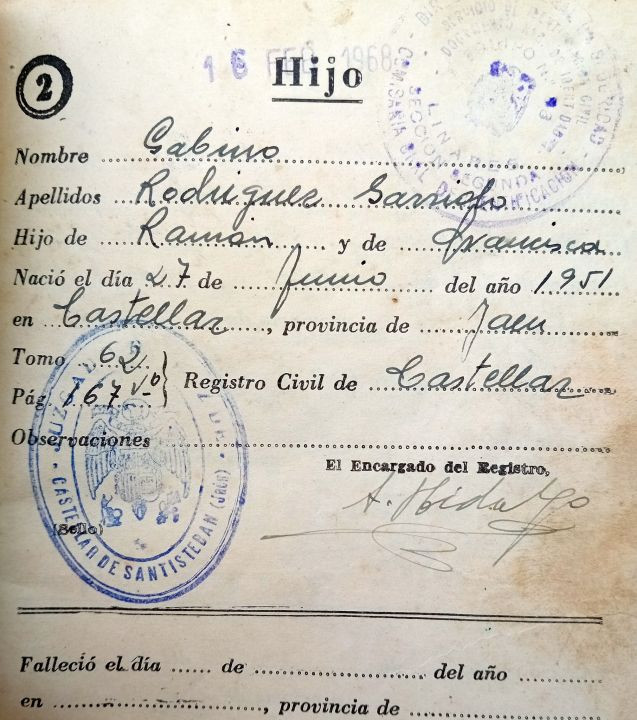 16 FEB 1968
2
Hijo
Nombre Gabino
Apellidos Rodriguez Garrido
Hijo de Ramón y de Francisca
Nació el día 27 de Junio del año 1951
en Castellar, provincia de Jaen
Tomo 62
Pág. 167 vº
Registro Civil de Castellar
Observaciones
El Encargado del Registro,
A. Hidalgo
(Sello)
CASTELLAR DE SANTISTEBAN (JAEN)
Falleció el día de del año
en , provincia de